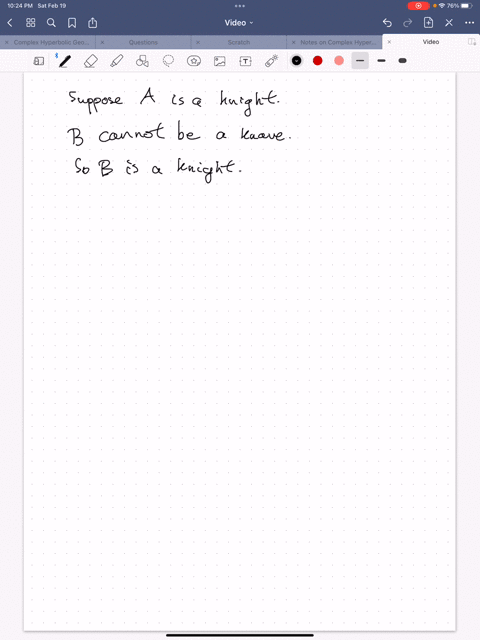 10:24 PM Sat Feb 19
76%
Video
Complex Hyperbolic Geo...
Questions
Scratch
Notes on Complex Hyper...
Video
Suppose A is a knight.
B cannot be a knave.
So B is a knight.